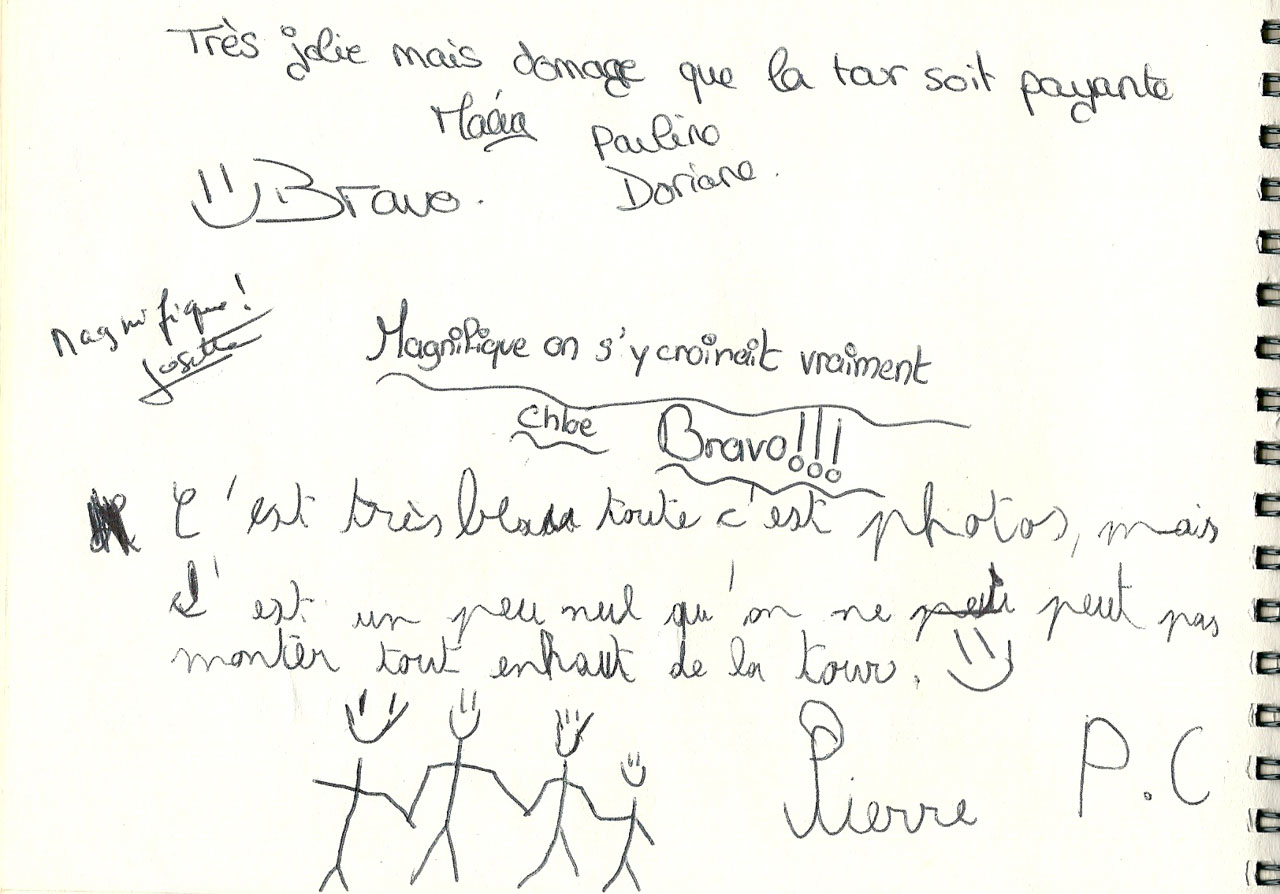 Très jolie mais domage que la tar soit payante
Maéva Pauline
Doriane.
Bravo.
Magnifique!
Josette
Magnifique on s'y croirait vraiment
Chloe Bravo!!!
C'est très beau toute c'est photos, mais
c'est un peu nul qu'on ne peut pas
monter tout enhaut de la tour.
Pierre P.C